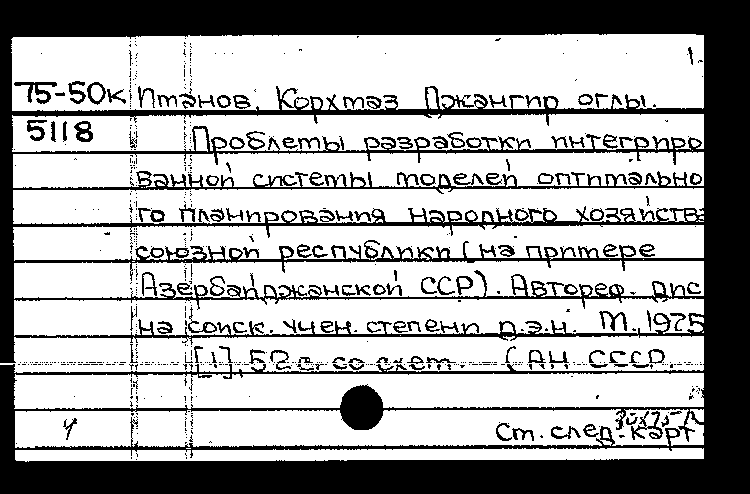 1.
75-50к Иманов, Корхмаз Джангир оглы.
5118 Проблемы разработки интегриро
ванной системы моделей оптимально
го планирования народного хозяйства
союзной республики (на примере
Азербайджанской ССР). Автореф. дис
на соиск. учен. степени д.э.н. М., 1975
[1], 52 с. со схем. (АН СССР.
Ч
Ст. след. карт